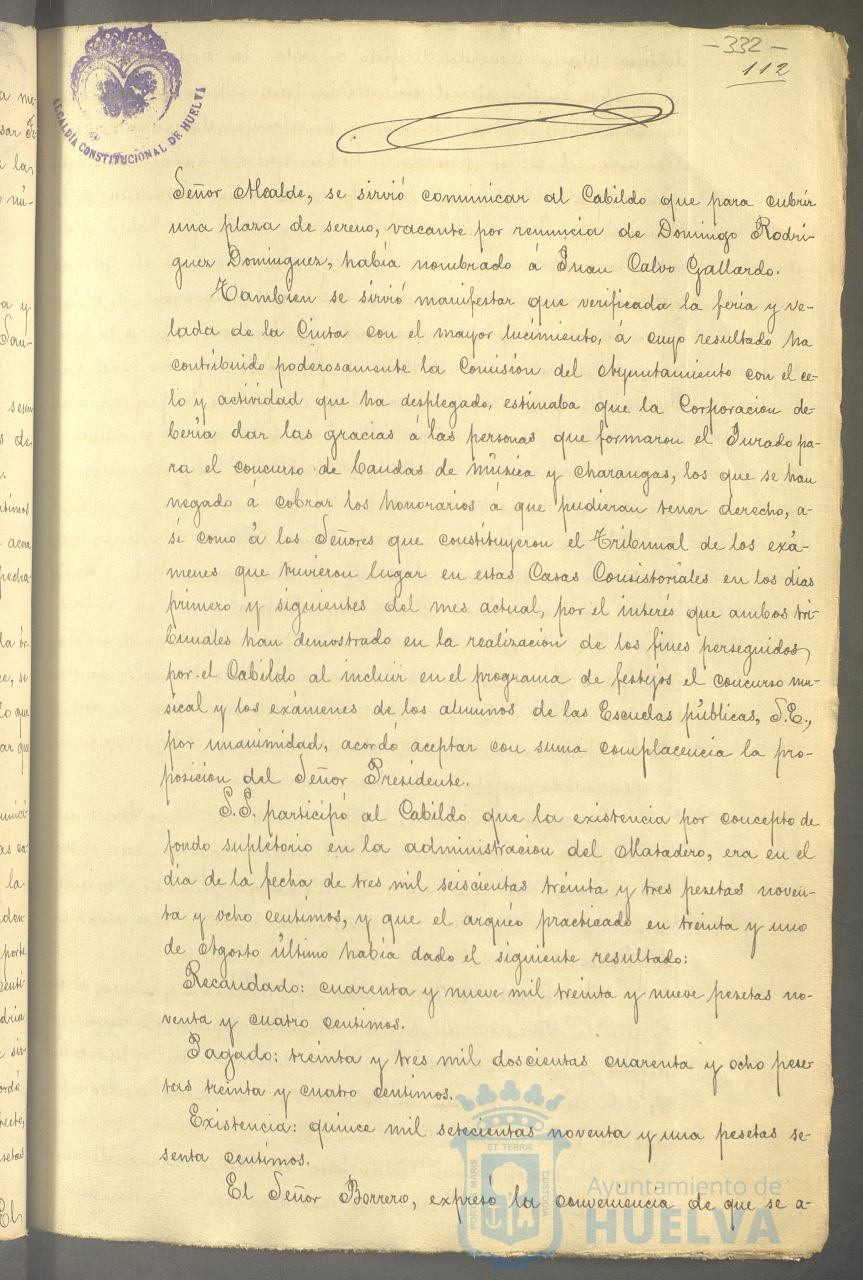 -332-
112
ALCALDÍA CONSTITUCIONAL DE HUELVA
Señor Alcalde, se sirvió comunicar al Cabildo que para cubrir
una plaza de sereno, vacante por renuncia de Domingo Rodrí-
guez Dominguez, había nombrado á Juan Calvo Gallardo.
Tambien se sirvió manifestar que verificada la feria y ve-
lada de la Cinta con el mayor lucimiento, á cuyo resultado ha
contribuido poderosamente la Comisión del Ayuntamiento con el ce-
lo y actividad que ha desplegado, estimaba que la Corporacion de-
bería dar las gracias á las personas que formaron el Jurado pa-
ra el concurso de bandas de música y charangas, los que se han
negado á cobrar los honorarios á que pudieran tener derecho, a-
sí como á los Señores que constituyeron el Tribunal de los exá-
menes que tuvieron lugar en estas Casas Consistoriales en los días
primero y siguientes del mes actual, por el interés que ambos tri-
bunales han demostrado en la realización de los fines perseguidos
por el Cabildo al incluir en el programa de festejos el concurso mu-
sical y los exámenes de los alumnos de las Escuelas públicas, S.E.,
por unanimidad, acordó aceptar con suma complacencia la pro-
posición del Señor Presidente.
S.S. participó al Cabildo que la existencia por concepto de
fondo supletorio en la administracion del Matadero, era en el
día de la fecha de tres mil seiscientas treinta y tres pesetas noven-
ta y ocho centimos, y que el arqueo practicado en treinta y uno
de Agosto último había dado el siguiente resultado:
Recaudado: cuarenta y nueve mil treinta y nueve pesetas no-
venta y cuatro centimos.
Pagado: treinta y tres mil doscientas cuarenta y ocho pese-
tas treinta y cuatro centimos.
Existencia: quince mil setecientas noventa y una pesetas se-
senta centimos.
El Señor Borrero, expresó la conveniencia de que se a-
PORTUS MARIS ET TERRÆ CUSTODIA
Ayuntamiento de
HUELVA